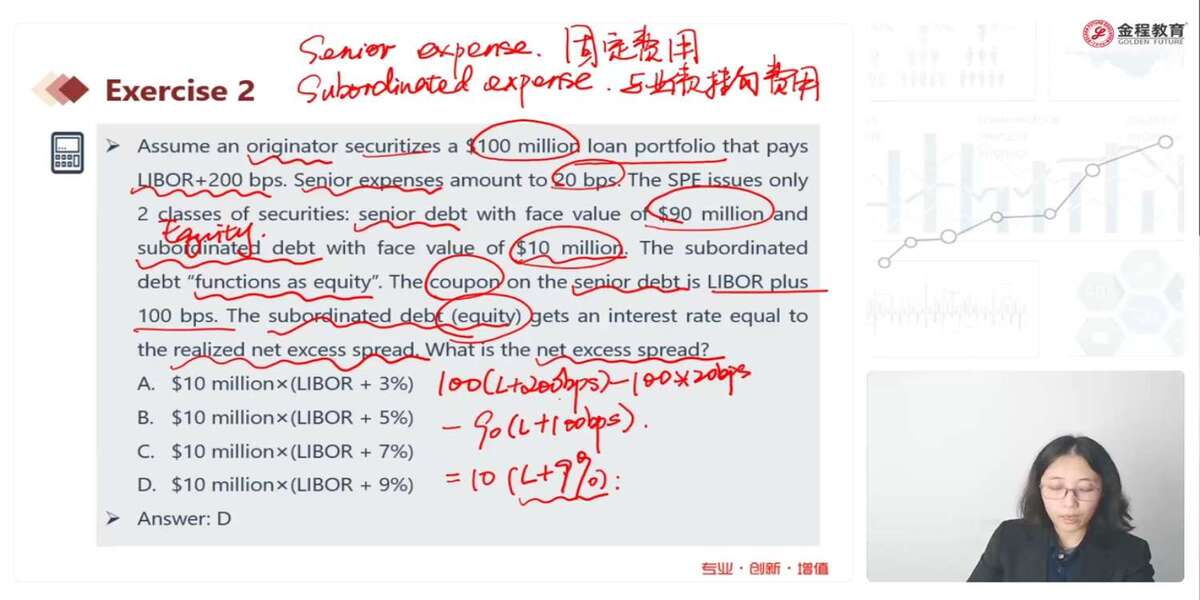 Senior expense. 固定费用
Subordinated expense. 与业债挂的费用
金程教育
GOLDEN FUTURE
Exercise 2
➢ Assume an originator securitizes a $100 million loan portfolio that pays
LIBOR+200 bps. Senior expenses amount to 20 bps. The SPE issues only
2 classes of securities: senior debt with face value of $90 million and
Equity.
subordinated debt with face value of $10 million. The subordinated
debt “functions as equity”. The coupon on the senior debt is LIBOR plus
100 bps. The subordinated debt (equity) gets an interest rate equal to
the realized net excess spread. What is the net excess spread?
A. $10 million×(LIBOR + 3%)
100(L+200bps)-100×20bps
B. $10 million×(LIBOR + 5%)
- 90(L+100bps).
C. $10 million×(LIBOR + 7%)
D. $10 million×(LIBOR + 9%)
= 10(L+9%):
➢ Answer: D
专业·创新·增值